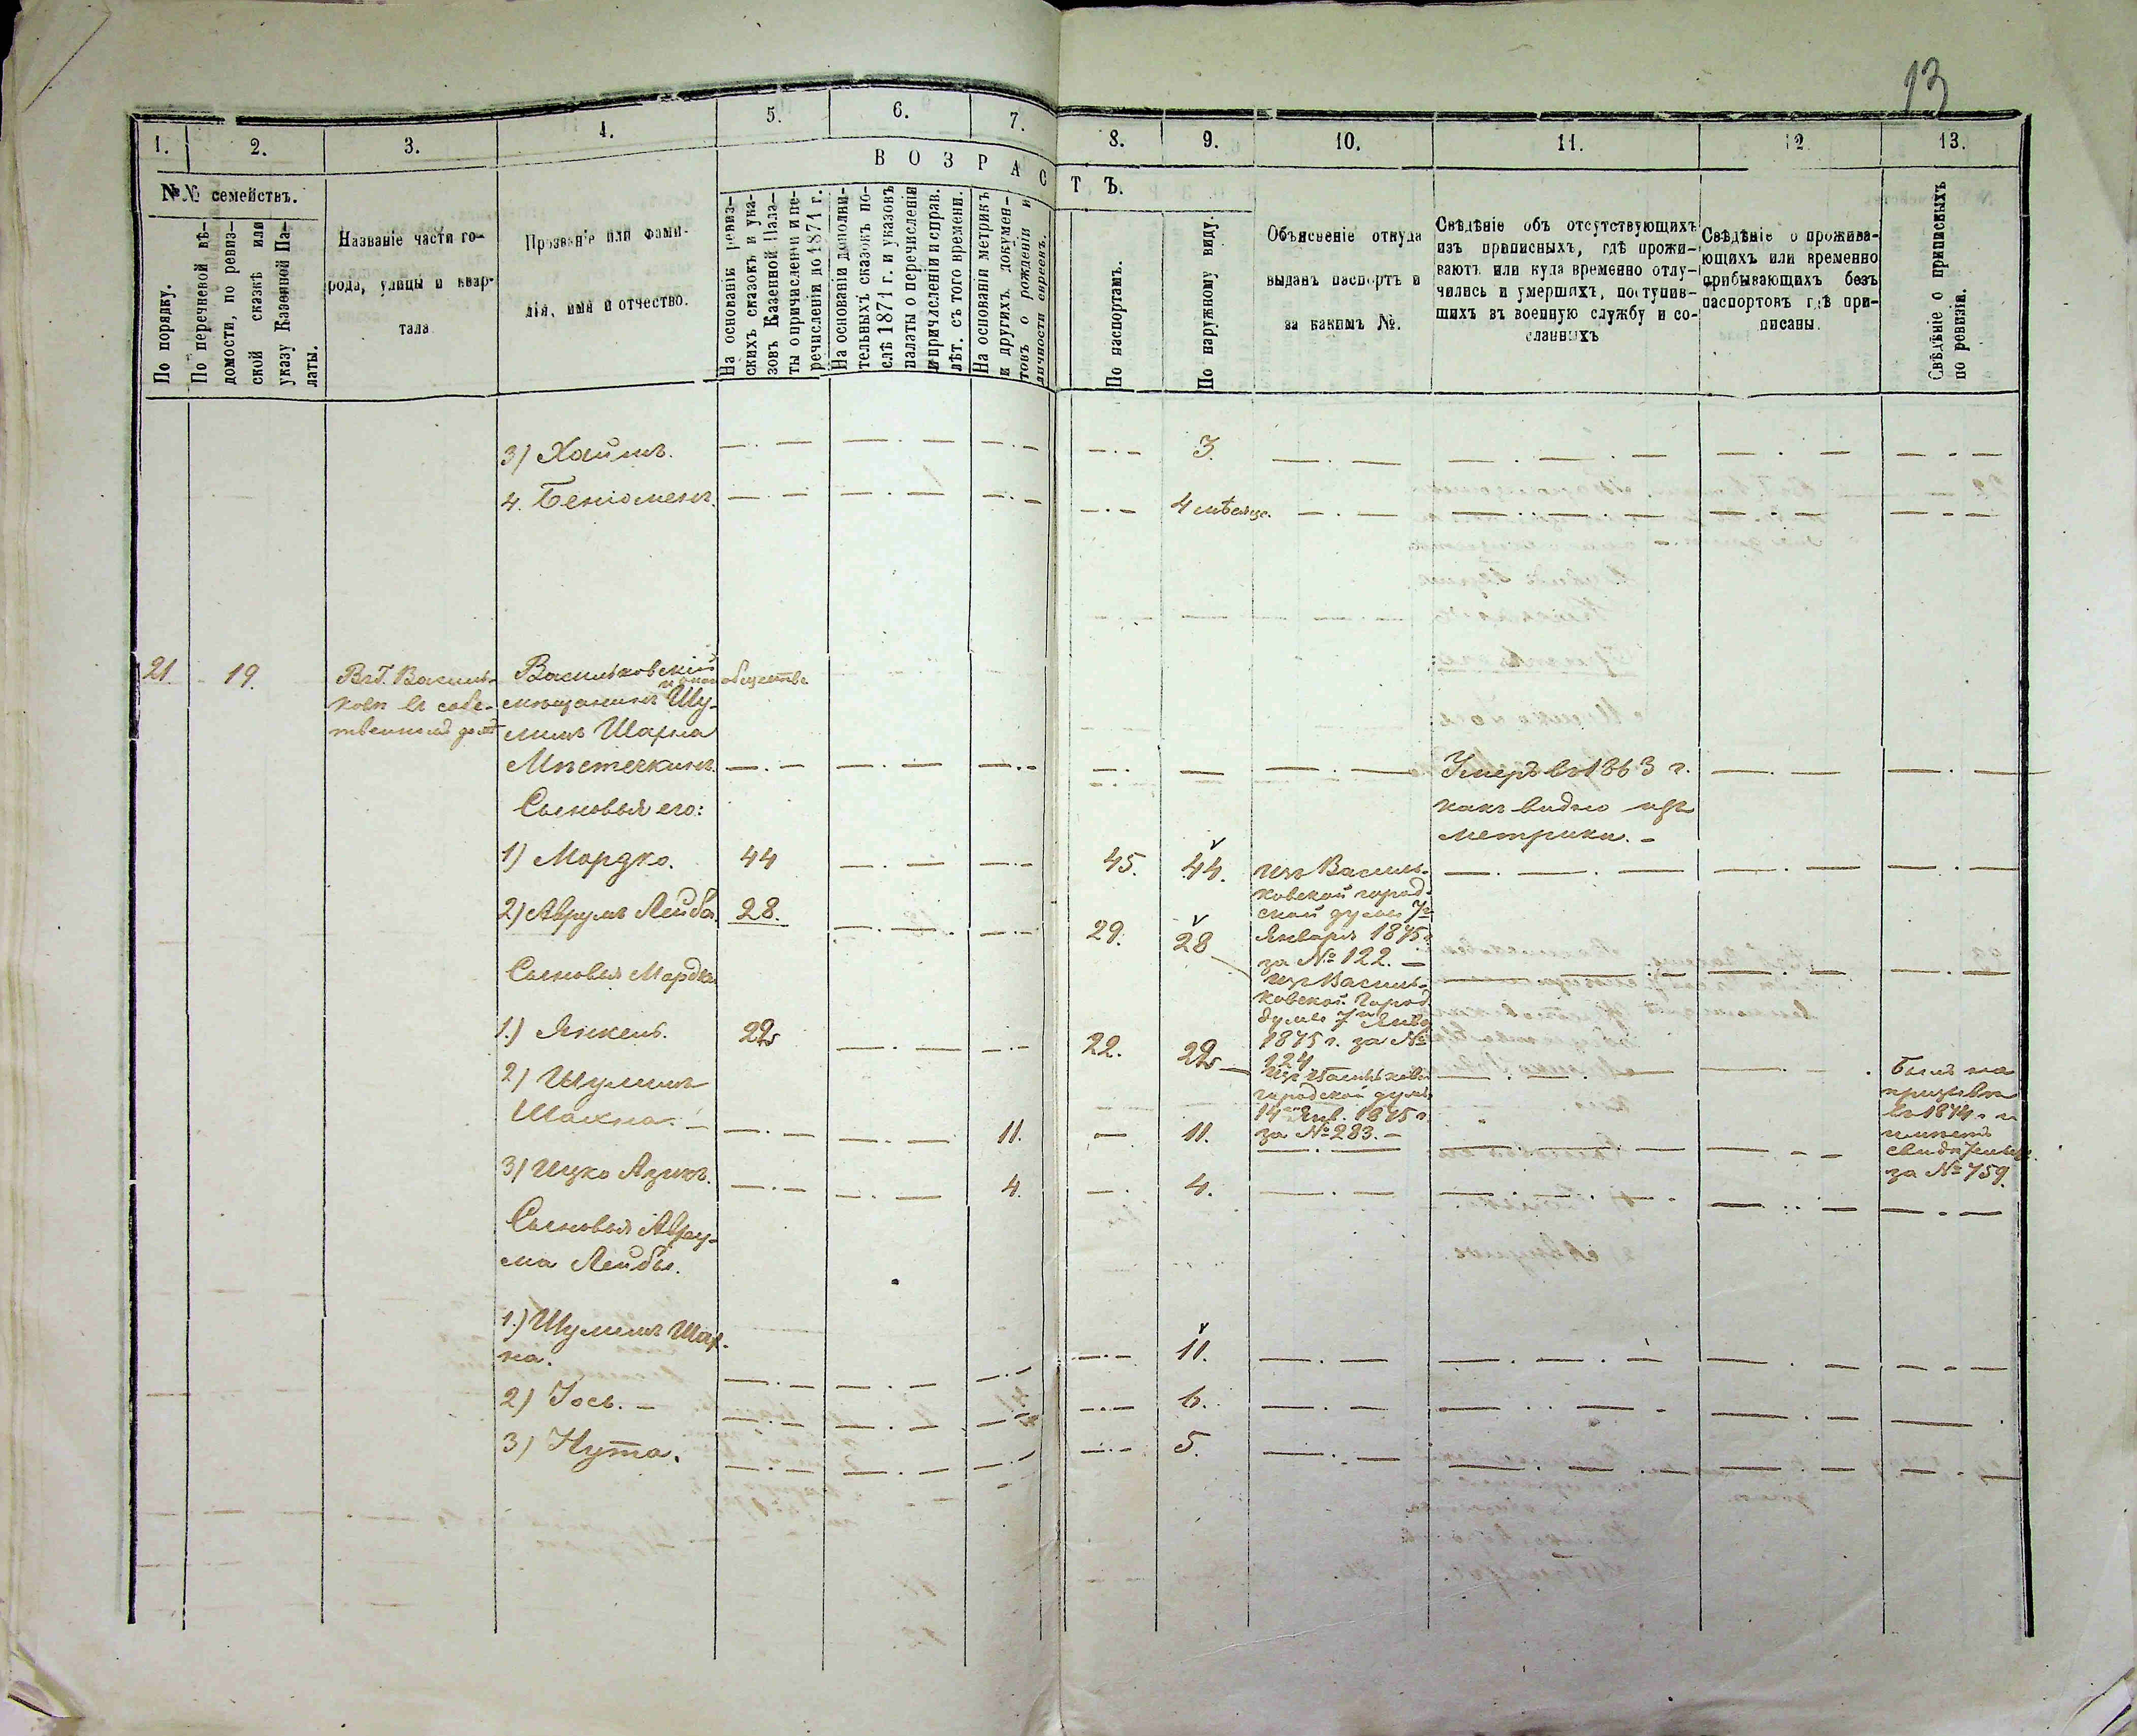 13
1. 2. 3. 4. 5. 6. 7. 8. 9. 10. 11. 12 13.
№№ семействъ.
По порядку.
По перечневой вѣ-
домости, по ревиз-
ской сказкѣ или
указу Казенной Па-
латы.
Названіе части го-
рода, улицы и квар-
тала
Прозваніе или фами-
лія, имя и отчество.
ВОЗРАСТЪ.
На основаніи ревиз-
скихъ сказокъ и ука-
зовъ Казенной Пала-
ты о причисленіи и пе-
речисленіи до 1871 г.
На основаніи дополни-
тельныхъ сказокъ по-
слѣ 1871 г. и указовъ
палаты о перечисленіи
и причисленіи и справ.
лѣт. съ того времени.
На основаніи метрикъ
и другихъ докумен-
товъ о рожденіи и
личности евреевъ.
По паспортамъ.
По наружному виду.
Объясненіе откуда
выданъ паспортъ и
за какимъ №.
Свѣдѣніе объ отсутствующихъ
изъ приписныхъ, гдѣ прожи-
ваютъ или куда временно отлу-
чились и умершихъ, поступив-
шихъ въ военную службу и со-
сланныхъ
Свѣдѣніе о прожива-
ющихъ или временно
прибывающихъ безъ
паспортовъ гдѣ при-
писаны.
Свѣдѣніе о приписныхъ
по ревизіи.
3) Хаимъ. — — — — 3. — — — —
4. Беніоменъ. — — — — 4 мѣсяца. — — — —
21. 19. Въ Г. Василь-
ковѣ въ собс-
твенномъ домѣ
Васильковскій
мѣщанинъ Шу-
лимъ Шахна
Мистечкинъ. — — — — — — Умеръ въ 1863 г. — —
какъ видно изъ
метрики. —
Сыновья его:
1) Мордко. 44 — — 45. 44. изъ Василь-
ковской город-
ской думы 7го
Января 1875 г.
за № 122. —
2) Аврумъ Лейба. 28. — — 29. 28
изъ Василь-
ковской город.
думы 7го Янв.
1875 г. за №
124
Сыновья Мордка
1.) Янкель. 22 — — 22. 22
изъ Васильков.
городской думы
14го Янв. 1875 г.
за № 283. —
Былъ на
призывѣ
въ 1874 г. и
имѣетъ
свидѣтельс.
за № 759.
2) Шулимъ
Шахна. — — — 11. — 11. — — — —
3) Ицко Азикъ. — — 4. — 4. — — — —
Сыновья Авру-
ма Лейбы.
1.) Шулимъ Шах-
на. — — — — 11. — — — —
2) Іось. — — — — — 6. — — — —
3) Нута. — — — — 5. — — — —